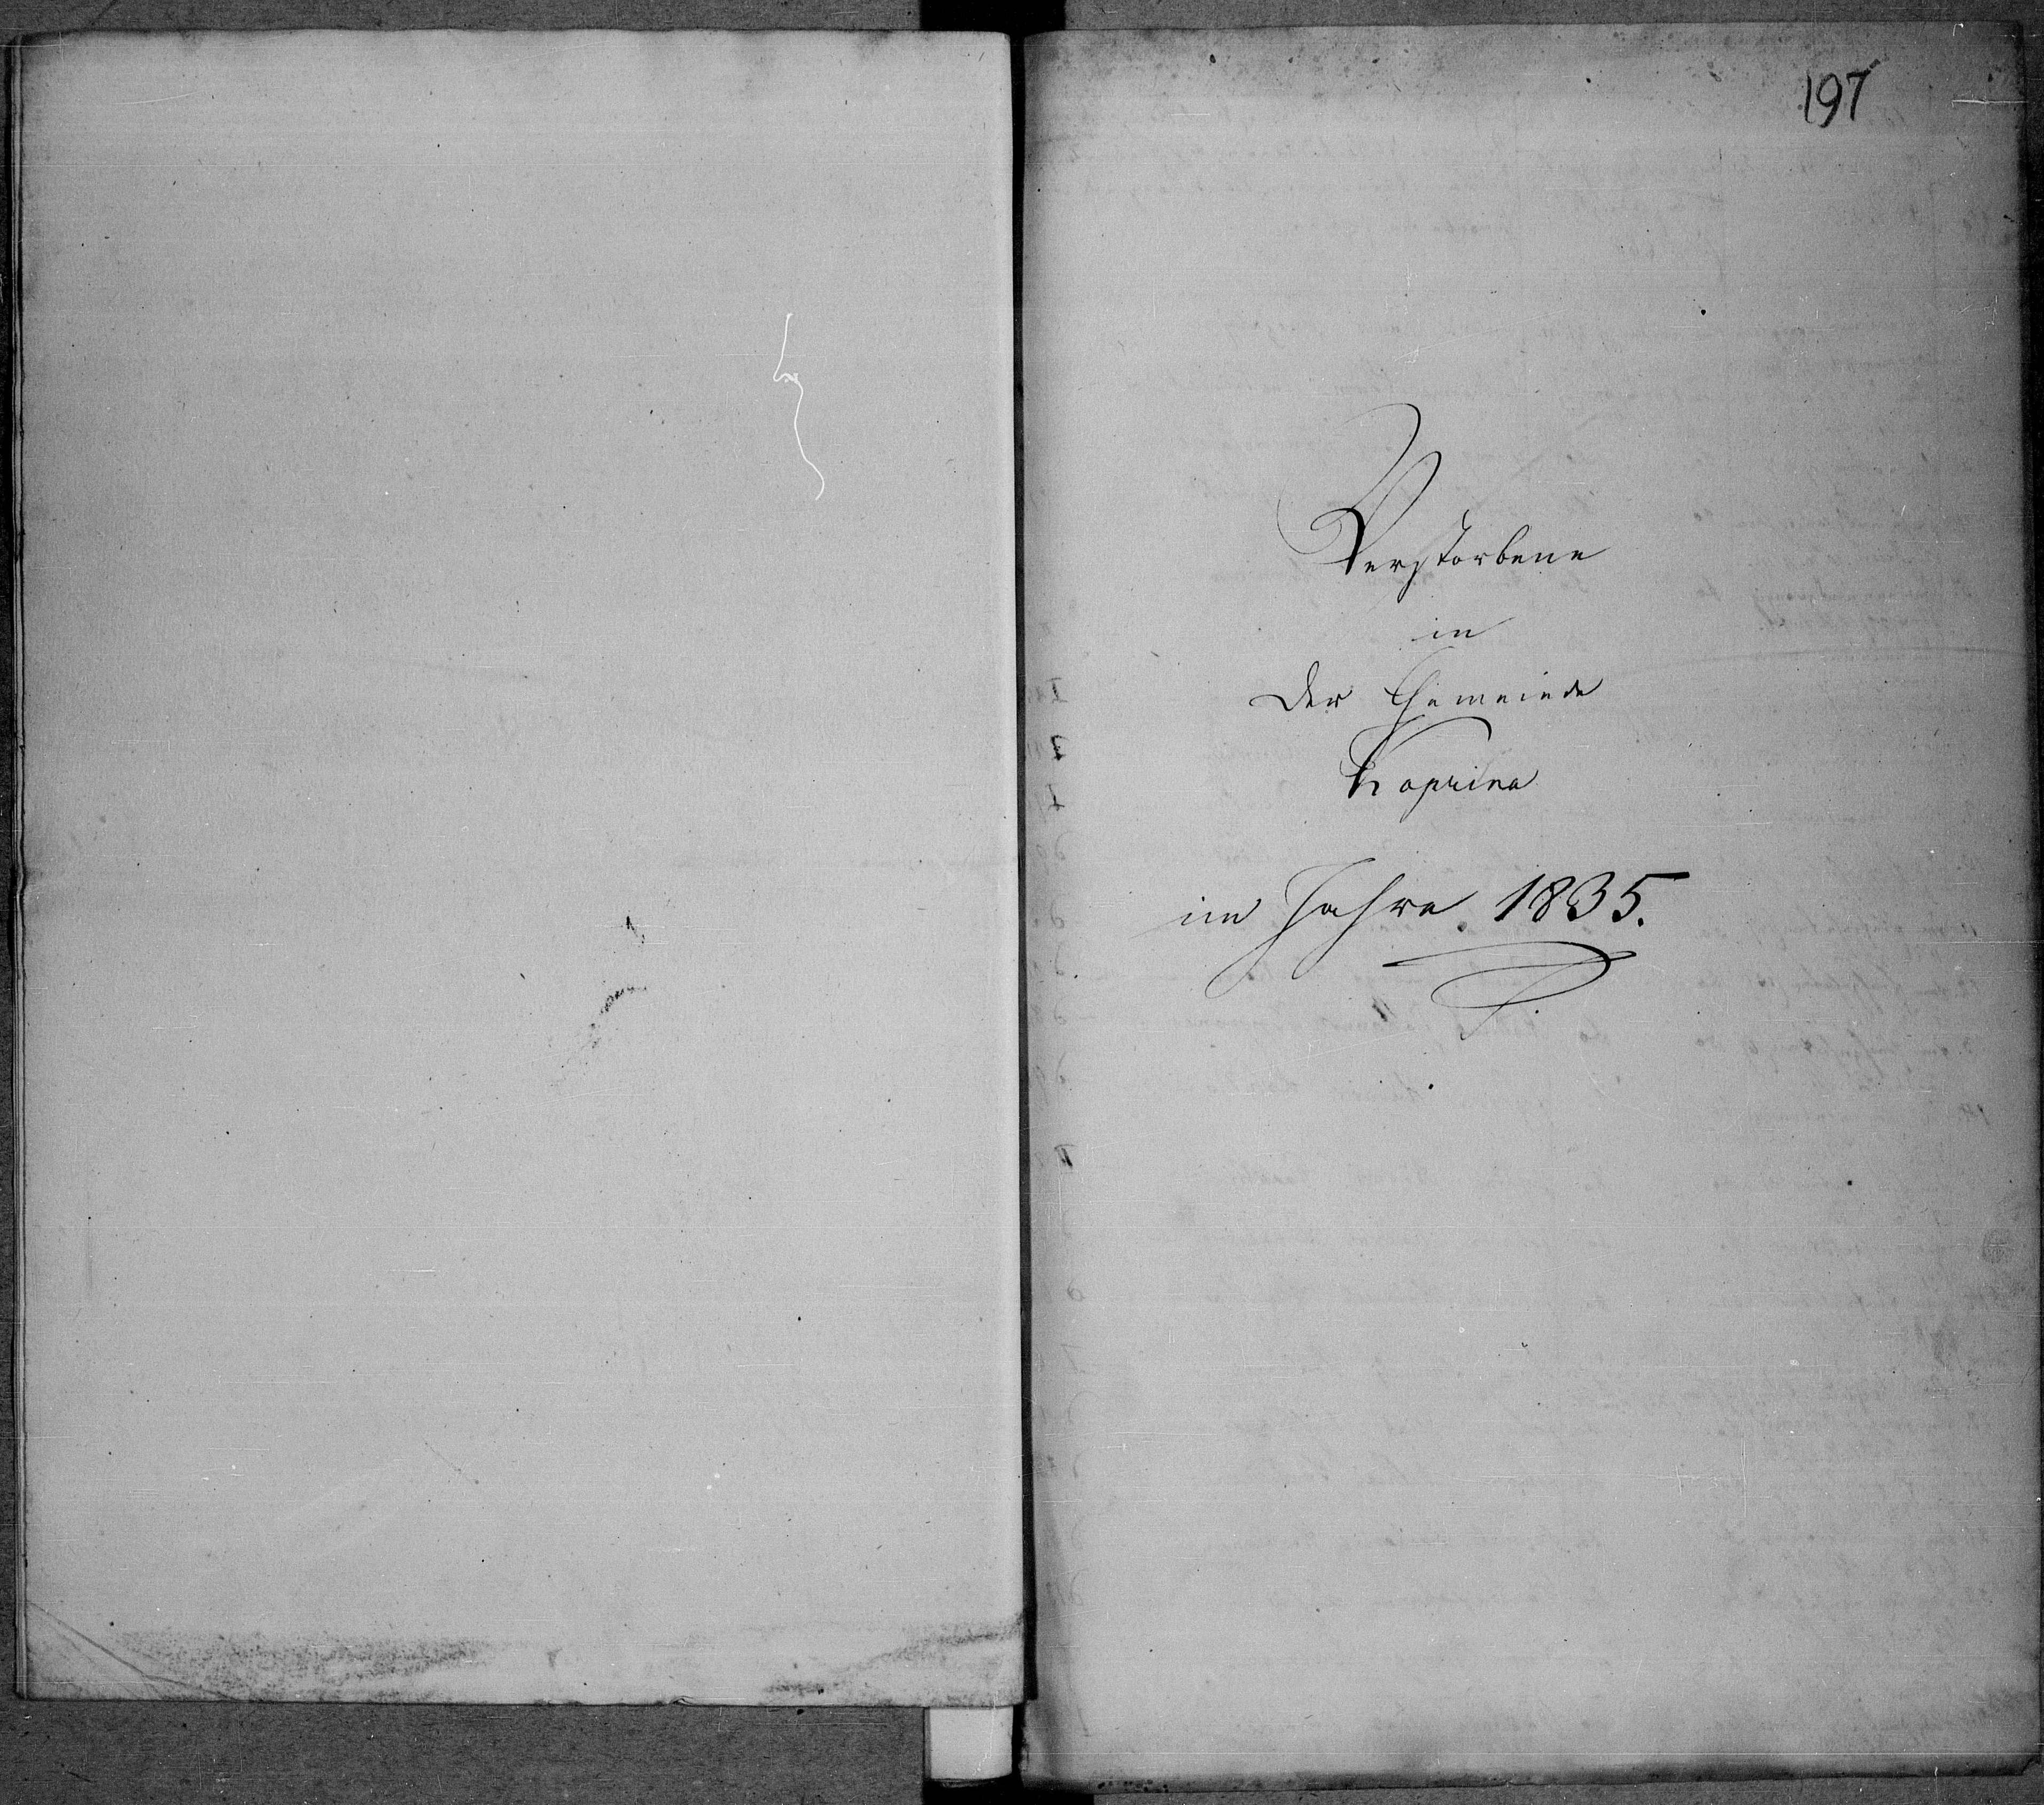 197
Verstorbene
in
der Gemeinde
Kaprina
im Jahre 1835.